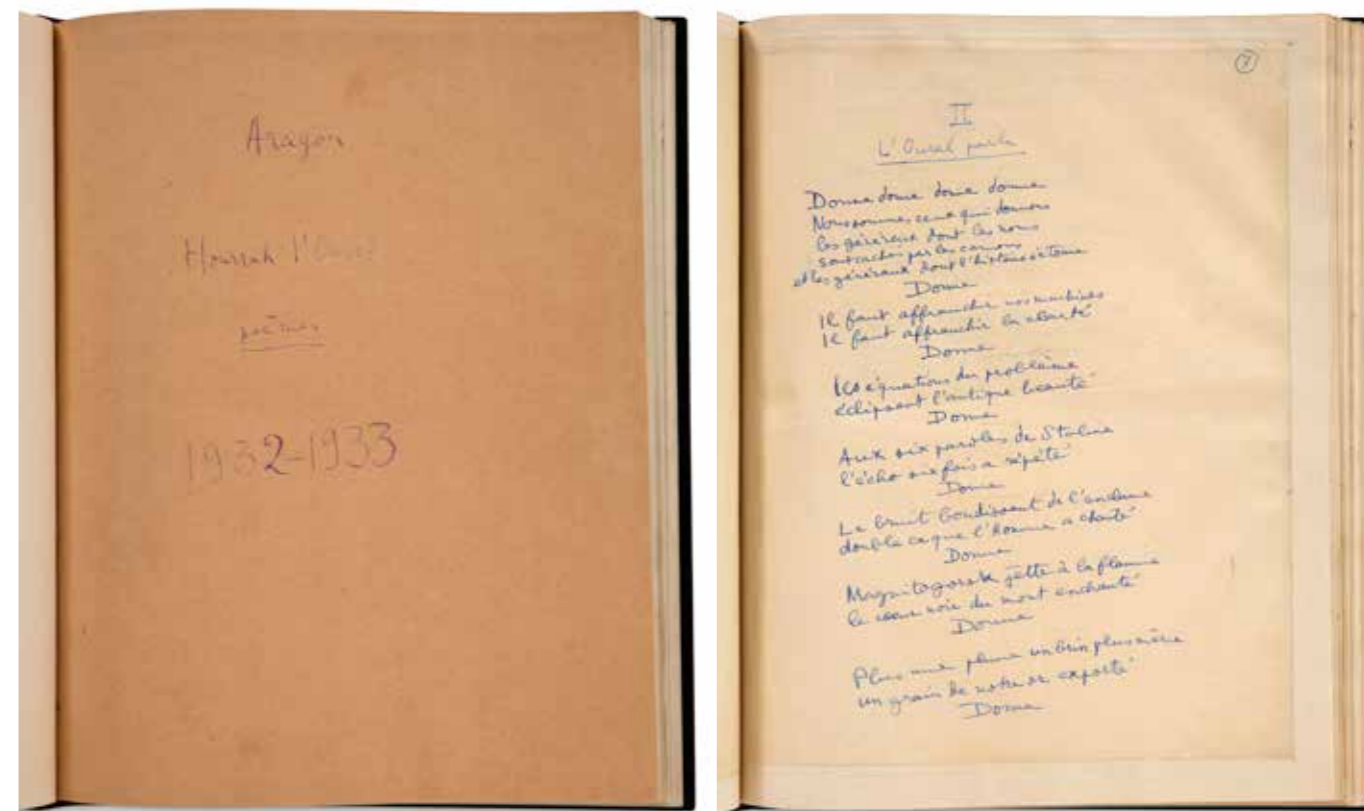 Aragon
Hourrah l'Oural
poèmes
1932-1933
7
II
L'Oural parle
Donne donne donne donne
Nous sommes ceux qui donnons
les généraux dont les noms
sont cachés par les canons
et les généraux dont l'histoire s'étonne
Donne
Il faut affranchir nos machines
Il faut affranchir la clarté
Donne
les équations du problème
éclipsent l'antique beauté
Donne
Aux six paroles de Staline
l'écho six fois a répété
Donne
Le bruit bondissant de l'enclume
double ce que l'homme a chanté
Donne
Magnitogorsk jette à la flamme
le cœur noir du mont enchanté
Donne
Plus une plume un brin plus même
un grain de notre or exporté
Donne